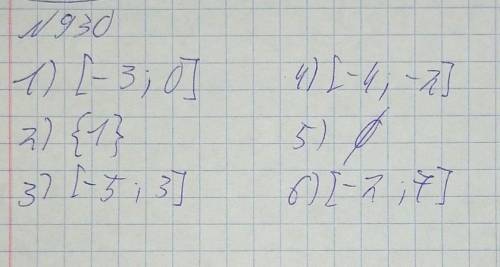 №930
1) [-3; 0]
2) {1}
3) [-5; 3]
4) [-4; -2]
5) ∅
6) [-2; 7]